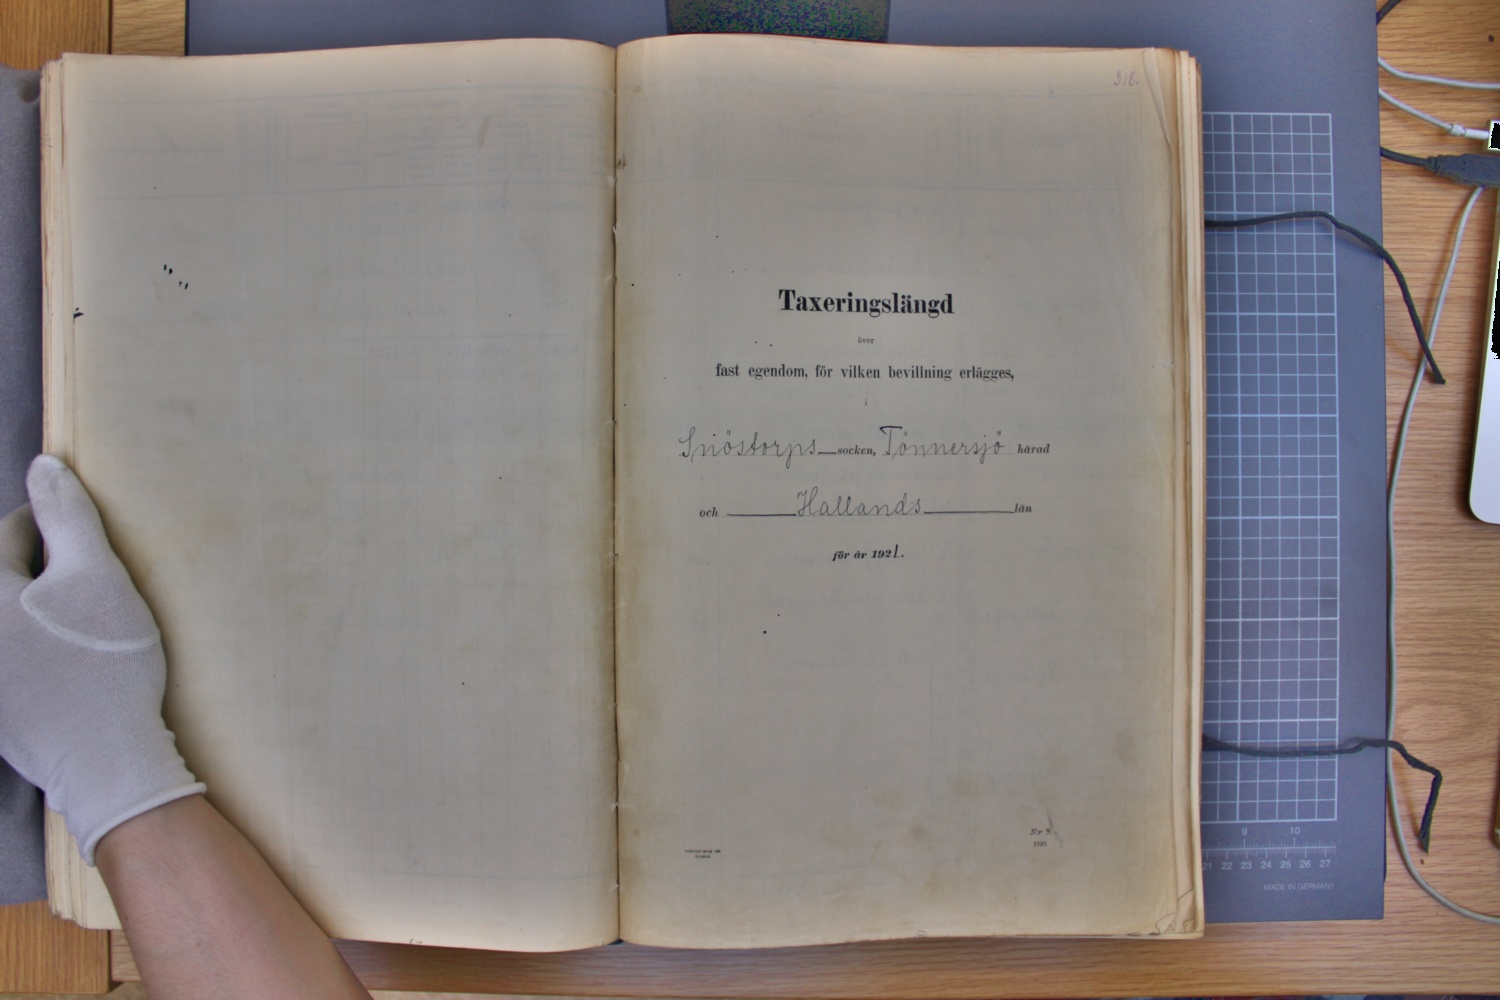 318.
Taxeringslängd
över
fast egendom, för vilken bevillning erlägges,
i
Snöstorps socken, Tönnersjö härad
och Hallands län
för år 1921.
Nr 9.
9 10
21 22 23 24 25 26 27
MADE IN GERMANY